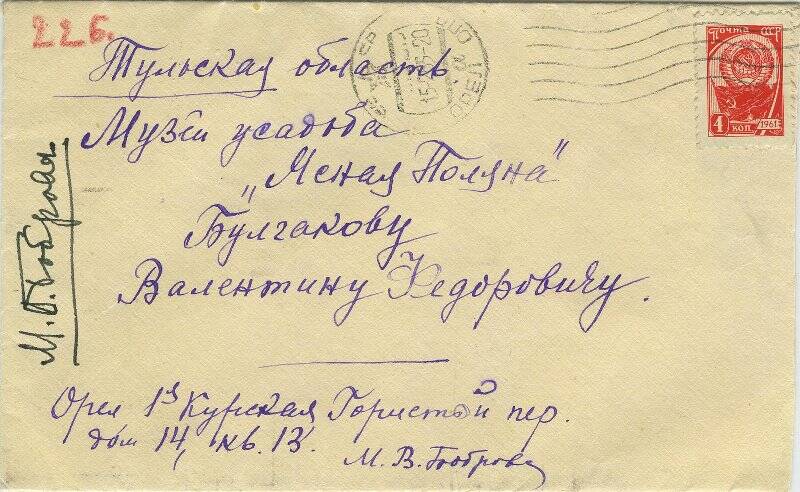 226.
Тульская область
Музей усадьба
„Ясная Поляна"
Булгакову
Валентину Федоровичу.
Орел 1я Курская Гористый пер.
дом 14, кв. 13.
М. В. Боброва
М. В. Боброва
ПОЧТА СССР
4 КОП. 1961
ОРЕЛ